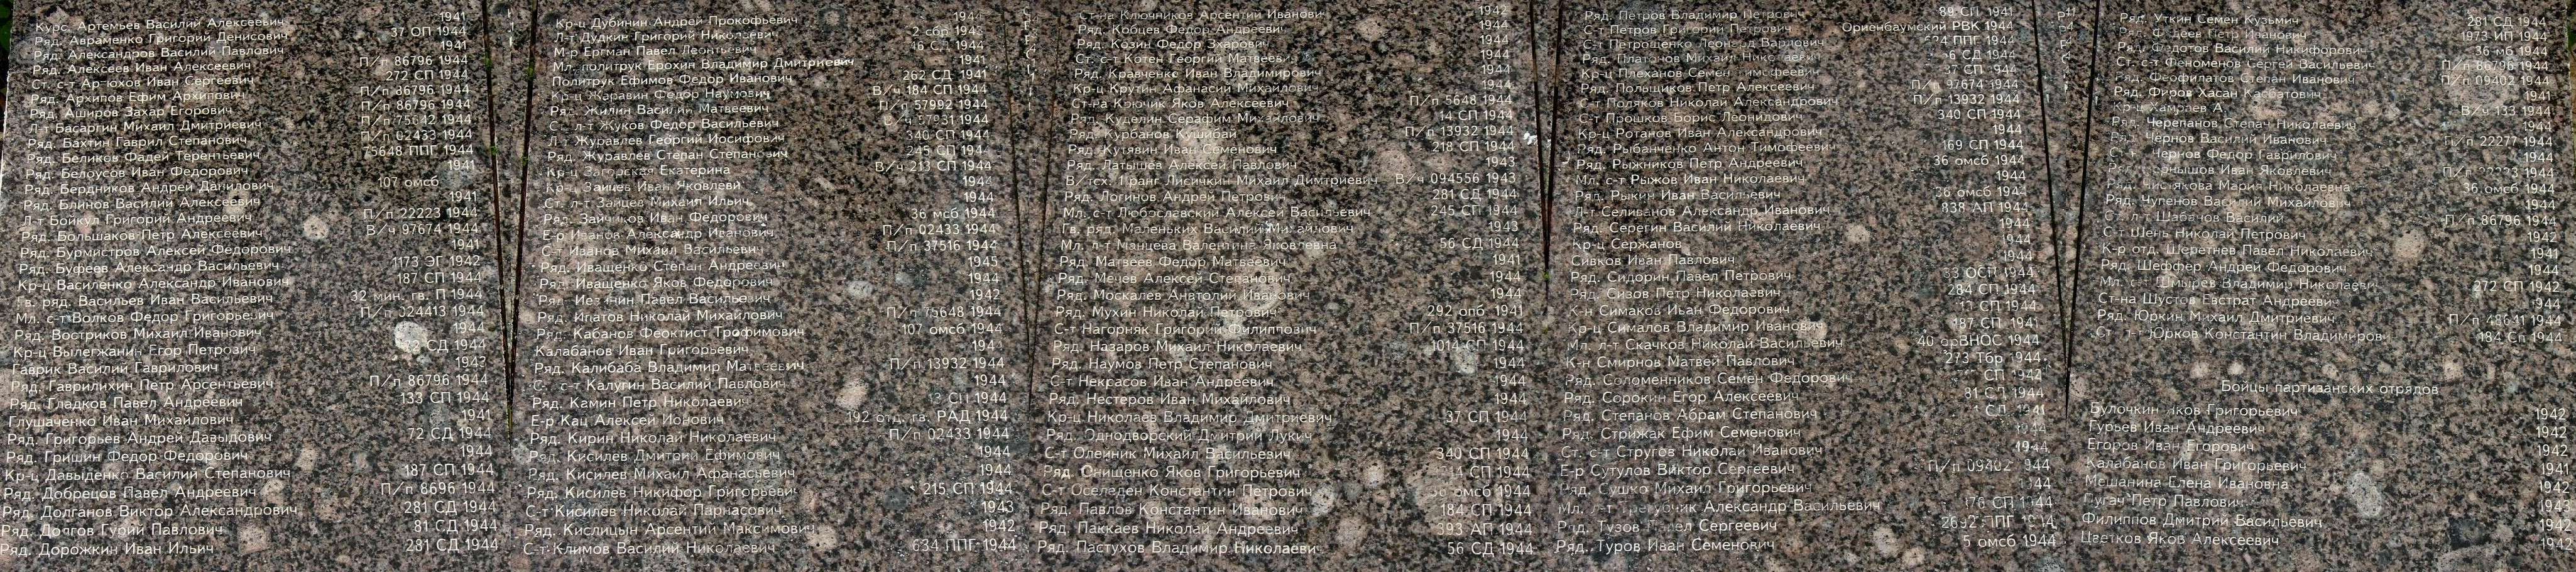 Курс. Артемьев Василий Алексеевич 1941
Ряд. Авраменко Григорий Денисович 37 ОП 1944
Ряд. Александров Василий Павлович 1941
Ряд. Алексеев Иван Алексеевич П/п 86796 1944
Ст. с-т Артюхов Иван Сергеевич 272 СП 1944
Ряд. Архипов Ефим Архипович П/п 86796 1944
Ряд. Аширов Захар Егорович П/п 86796 1944
Л-т Басаргин Михаил Дмитриевич П/п 75642 1944
Ряд. Бахтин Гаврил Степанович П/п 02433 1944
Ряд. Беликов Фадей Терентьевич 75648 ППГ 1944
Ряд. Белоусов Иван Федорович 1941
Ряд. Бердников Андрей Данилович 107 омсб
Ряд. Блинов Василий Алексеевич 1941
Л-т Бойкул Григорий Андреевич П/п 22223 1944
Ряд. Большаков Петр Алексеевич В/ч 97674 1944
Ряд. Бурмистров Алексей Федорович 1941
Ряд. Буфеев Александр Васильевич 1173 ЭГ 1942
Кр-ц Василенко Александр Иванович 187 СП 1944
Гв. ряд. Васильев Иван Васильевич 32 мин. гв. П 1944
Мл. с-т Волков Федор Григорьевич П/п 024413 1944
Ряд. Востриков Михаил Иванович 1944
Кр-ц Вылегжанин Егор Петрович СД 1944
Гаврик Василий Гаврилович 1942
Ряд. Гаврилихин Петр Арсентьевич П/п 86796 1944
Ряд. Гладков Павел Андреевич 133 СП 1944
Глушаченко Иван Михайлович 1941
Ряд. Григорьев Андрей Давыдович 72 СД 1944
Ряд. Гришин Федор Федорович 1944
Кр-ц Давыденко Василий Степанович 187 СП 1944
Ряд. Добрецов Павел Андреевич П/п 8696 1944
Ряд. Долганов Виктор Александрович 281 СД 1944
Ряд. Долгов Гурий Павлович 81 СД 1944
Ряд. Дорожкин Иван Ильич 281 СД 1944
Кр-ц Дубинин Андрей Прокофьевич 1944
Л-т Дудкин Григорий Николаевич 2 сбр 1943
М-р Ергман Павел Леонтьевич 46 СД 1944
Мл. политрук Ерохин Владимир Дмитриевич 1941
Политрук Ефимов Федор Иванович 262 СД 1941
Кр-ц Жаравин Федор Наумович В/ч 184 СП 1944
Ряд. Жилин Василий Матвеевич П/п 57992 1944
Ст. л-т Жуков Федор Васильевич В/ч 57931 1944
Л-т Журавлев Георгий Иосифович 340 СП 1944
Ряд. Журавлев Степан Степанович 245 СП 1944
Кр-ц Загорская Екатерина В/ч 213 СП 1944
Кр-ц Зайцев Иван Яковлевич 1944
Ст. л-т Зайцев Михаил Ильич 1944
Ряд. Зайчиков Иван Федорович 36 мсб 1944
Е-р Иванов Александр Иванович П/п 02433 1944
С-т Иванов Михаил Васильевич П/п 37516 1944
Ряд. Иващенко Степан Андреевич 1945
Ряд. Иващенко Яков Федорович 1944
Ряд. Павел Васильевич 1942
Ряд. Ипатов Николай Михайлович П/п 75648 1944
Ряд. Кабанов Феоктист Трофимович 107 омсб 1944
Калабанов Иван Григорьевич
Ряд. Калибаба Владимир Матвеевич П/п 13932 1944
Ст. с-т Калугин Василий Павлович 1944
Ряд. Камин Петр Николаевич СП 1944
Е-р Кац Алексей Ионович 192 отд. гв. РАД 1944
Ряд. Кирин Николай Николаевич П/п 02433 1944
Ряд. Кисилев Дмитрий Ефимович 1944
Ряд. Кисилев Михаил Афанасьевич 1944
Ряд. Кисилев Никифор Григорьевич 215 СП 1944
С-т Кисилев Николай Парнасович 1943
Ряд. Кислицын Арсентий Максимович 1942
С-т Климов Василий Николаевич 634 ППГ 1944
Ст-на Ключников Арсентий Иванович 1942
Ряд. Кобцев Федор Андреевич 1944
Ряд. Козин Федор Эхарович 1944
Ст. с-т Котен Георгий Матвеевич 1944
Ряд. Кравченко Иван Владимирович 1944
Кр-ц Крутин Афанасий Михайлович 1944
Ст-на Крючик Яков Алексеевич П/п 5648 1944
Ряд. Куделин Серафим Михайлович 14 СП 1944
Ряд. Курбанов Кушибай П/п 13932 1944
Ряд. Кутявин Иван Семенович 218 СП 1944
Ряд. Латышев Алексей Павлович 1943
В/тех. 1ранг Лисичкин Михаил Димтриевич В/ч 094556 1943
Ряд. Логинов Андрей Петрович 281 СД 1944
Мл. с-т Любославский Алексей Васильевич 245 СП 1944
Гв. ряд. Маленьких Василий Михайлович 1943
Мл. л-т Манцева Валентина Яковлевна 56 СД 1944
Ряд. Матвеев Федор Матвеевич 1941
Ряд. Мечев Алексей Степанович 1944
Ряд. Москалев Анатолий Иванович 1944
Ряд. Мухин Николай Петрович 292 опб 1941
С-т Нагорняк Григорий Филиппович П/п 37516 1944
Ряд. Назаров Михаил Николаевич 1014 СП 1944
Ряд. Наумов Петр Степанович 1944
С-т Некрасов Иван Андреевич 1944
Ряд. Нестеров Иван Михайлович 1944
Кр-ц Николаев Владимир Дмитриевич 37 СП 1944
Ряд. Однодворский Дмитрий Лукич 1944
С-т Олейник Михаил Васильевич 340 СП 1944
Ряд. Онищенко Яков Григорьевич 14 СП 1944
С-т Оселеден Константин Петрович омсб 1944
Ряд. Павлов Константин Иванович 184 СП 1944
Ряд. Паккаев Николай Андреевич 393 АП 1944
Ряд. Пастухов Владимир Николаевич 56 СД 1944
Ряд. Петров Владимир Петрович 89 СП 1941
С-т Петров Григорий Петрович Ориенбаумский РВК 1944
С-т Петрощенко Леонард Варлович ППГ 1944
Ряд. Платонов Михаил Николаевич СД 1944
Кр-ц Плеханов Семен Тимофеевич 37 СП 1944
Ряд. Польщиков Петр Алексеевич П/п 97674 1944
С-т Поляков Николай Александрович П/п 13932 1944
С-т Прошков Борис Леонидович 340 СП 1944
Кр-ц Ротанов Иван Александрович 1944
Ряд. Рыбанченко Антон Тимофеевич 169 СП 1944
Ряд. Рыжников Петр Андреевич 36 омсб 1944
Мл. с-т Рыжов Иван Николаевич 1944
Ряд. Рыкин Иван Васильевич 36 омсб 1944
Л-т Селиванов Александр Иванович 838 АП 1944
Ряд. Серегин Василий Николаевич 1944
Кр-ц Сержанов 1944
Сивков Иван Павлович 1944
Ряд. Сидорин Павел Петрович 33 ОСП 1944
Ряд. Сизов Петр Николаевич 284 СП 1944
К-н Симаков Иван Федорович 13 СП 1944
Кр-ц Сималов Владимир Иванович 187 СП 1941
Мл. л-т Скачков Николай Васильевич 40 орВНОС 1944
К-н Смирнов Матвей Павлович 273 Тбр 1944
Ряд. Соломенников Семен Федорович СП 1942
Ряд. Сорокин Егор Алексеевич 81 СД 1944
Ряд. Степанов Абрам Степанович СД 1941
Ряд. Стрижак Ефим Семенович 1944
Ст. с-т Стругов Николай Иванович 1944
Е-р Сутулов Виктор Сергеевич П/п 09402 1944
Ряд. Сушко Михаил Григорьевич 1944
Мл. л-т Александр Васильевич 176 СП 1944
Ряд. Тузов Павел Сергеевич ППГ 1944
Ряд. Туров Иван Семенович 5 омсб 1944
Ряд. Уткин Семен Кузьмич 281 СД 1944
Ряд. Фадеев Петр Иванович 1973 ИП 1944
Ряд. Федотов Василий Никифорович 36 мб 1944
Ст. с-т Феноменов Сергей Васильевич П/п 86796 1944
Ряд. Феофилатов Степан Иванович П/п 09402 1944
Ряд. Фиров Хасан Касбатович 1941
Кр-ц Хамраев А. В/ч 133 1944
Ряд. Черепанов Степан Николаевич 1944
Ряд. Чернов Василий Иванович П/п 22277 1944
Ст. Чернов Федор Гаврилович 1944
Чернышов Иван Яковлевич П/п 22223 1944
Ряд. Чистякова Мария Николаевна 36 омсб 1944
Ряд. Чупенов Василий Михайлович 1944
Ст. л-т Шабачов Василий П/п 86796 1944
С-т Шень Николай Петрович 1942
К-р отд. Шеретнев Павел Николаевич 1941
Ряд. Шеффер Андрей Федорович 1944
Мл. с-т Шмырев Владимир Николаевич 272 СП 1942
Ст-на Шустов Евстрат Андреевич 1944
Ряд. Юркин Михаил Дмитриевич П/п 48641 1944
Ст. л-т Юрков Константин Владимирович 184 Сп 1944
Бойцы партизанских отрядов
Булочкин Яков Григорьевич 1942
Гурьев Иван Андреевич 1942
Егоров Иван Егорович 1942
Калабанов Иван Григорьевич 1941
Мешанина Елена Ивановна 1942
Пугач Петр Павлович 1943
Филиппов Дмитрий Васильевич 1942
Цветков Яков Алексеевич 1942